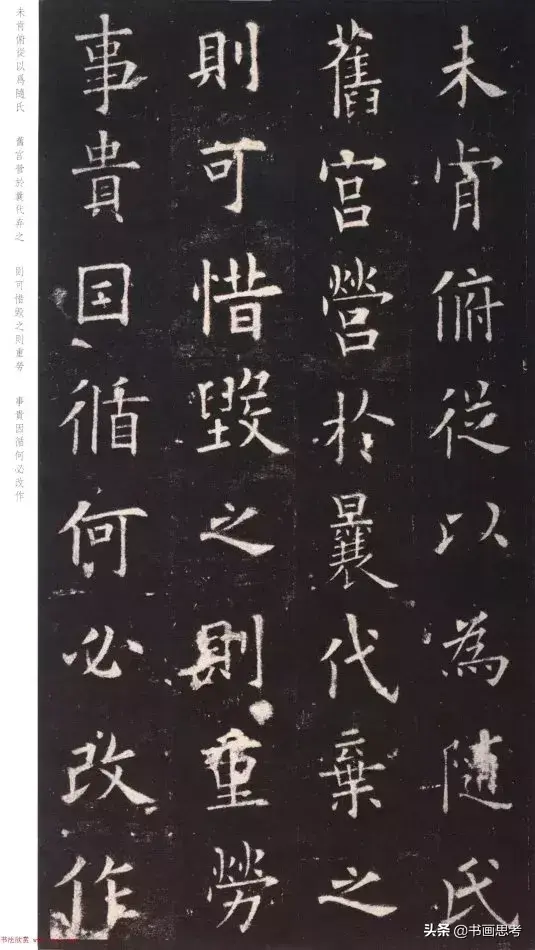 未肯俯從以為隨氏
舊宮營於曩代棄之
則可惜毀之則重勞
事貴因循何必改作
未肯俯從以爲隨氏 舊宮營於曩代弃之 則可惜毀之則重勞 事貴因循何必改作
书法欣赏
头条 @书画思考